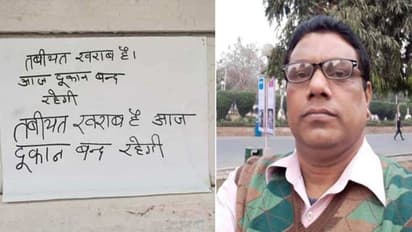 तबीयत खराब है।
आज दूकान बन्द
रहेगी
तबीयत खराब है आज
दूकान बन्द रहेगी